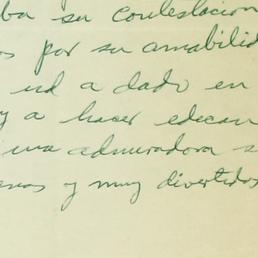 ba su contestacion
os por su amabilid
ud a dado en
y a hacer edecan
una admiradora s
enos y muy divertidos